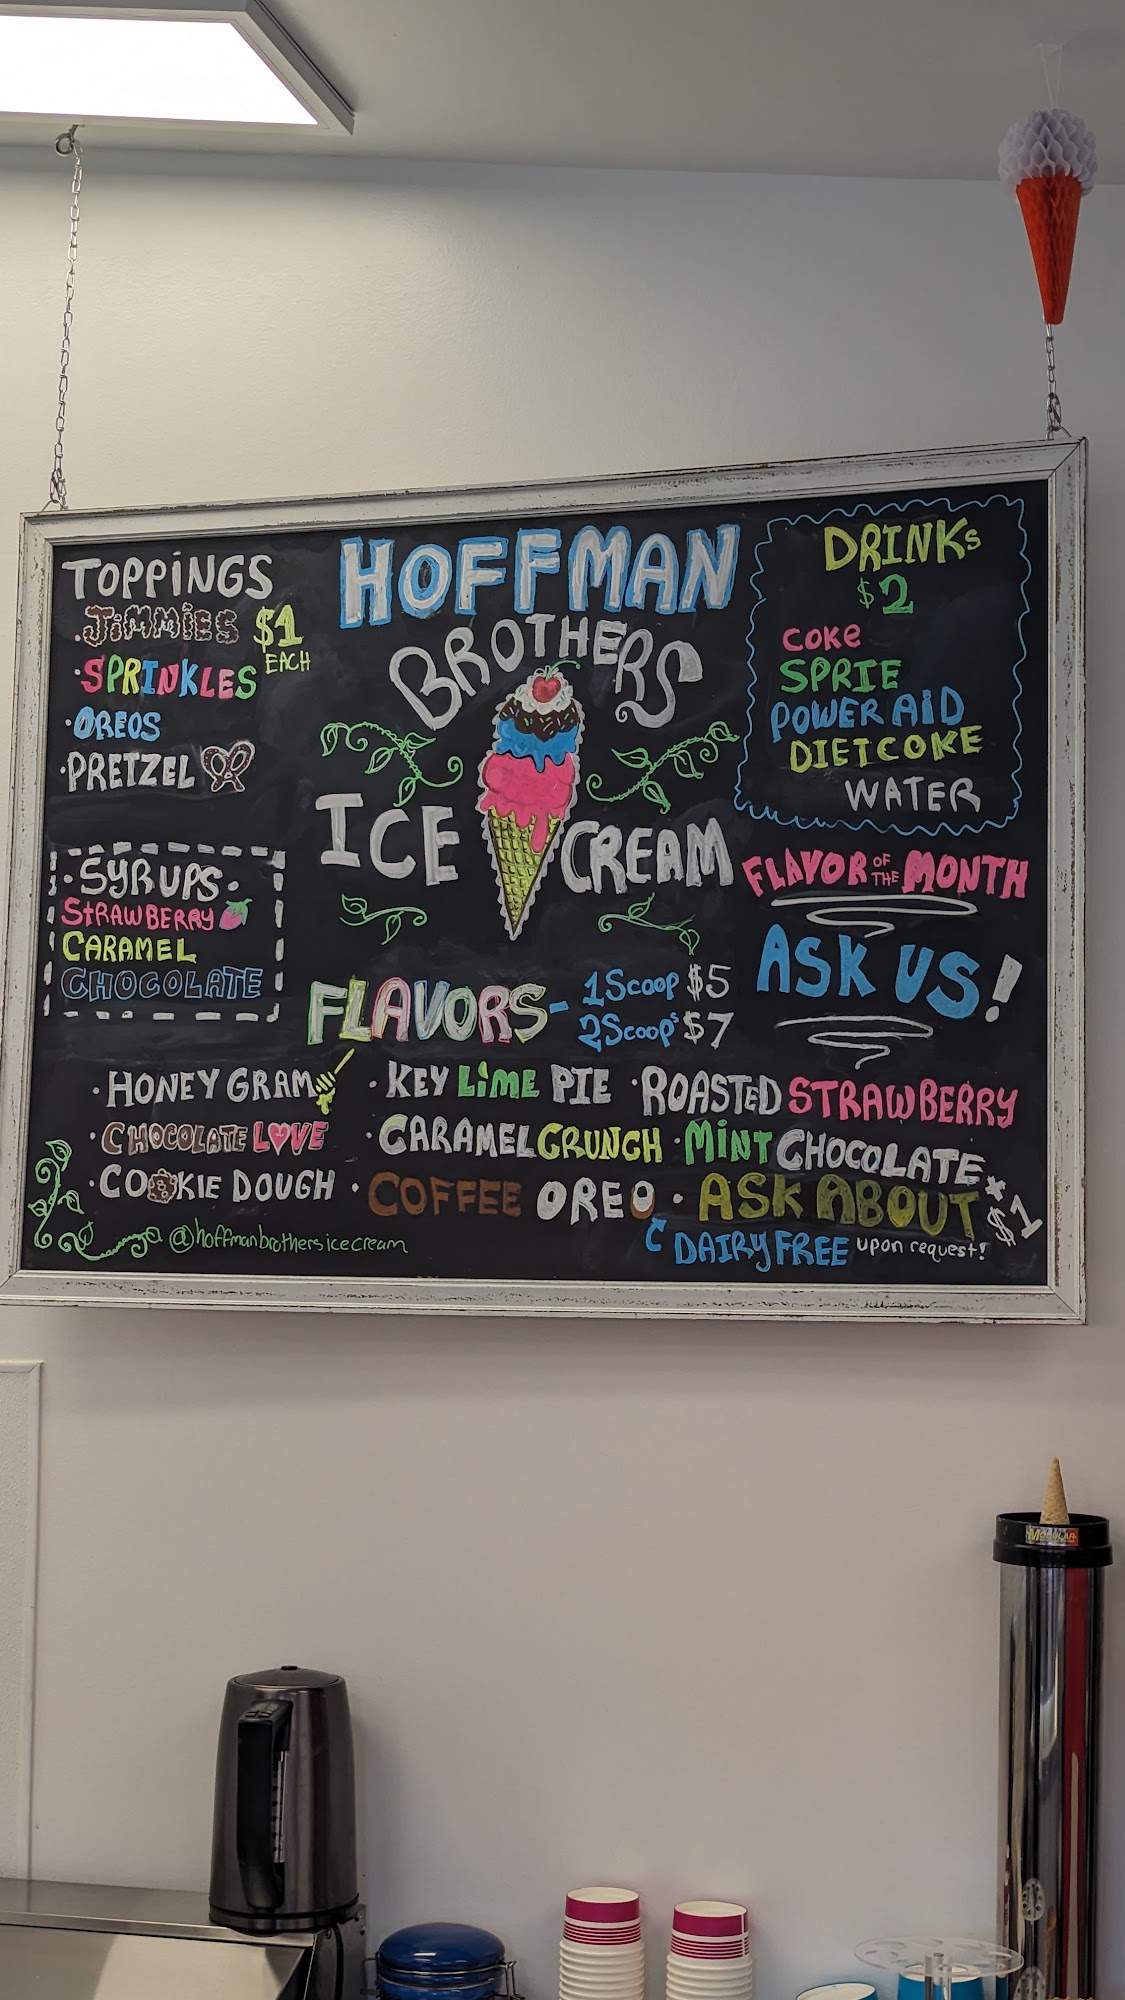 TOPPiNGS
·JiMMiES $1
EACH
·SPRINKLES
·OREOS
·PRETZEL
·SYRUPS·
StRAWBERRY
CARAMEL
CHOCOLATE
HOFFMAN
BROTHERS
ICE CREAM
DRINKs
$2
COKe
SPRIE
POWERAiD
DIETCOKE
WATER
FLAVOR OF THE MONTH
ASK US!
FLAVORS- 1Scoop $5
2Scoop's $7
·HONEY GRAM ·KEY LiME PIE ·ROASTED STRAWBERRY
·CHOCOLATE LOVE ·CARAMEL CRUNCH ·MiNT CHOCOLATE
·COOKIE DOUGH ·COFFEE OREO ·ASK ABOUT
DAIRY FREE upon request! *$1
@hoffmanbrothersicecream
MODULAR